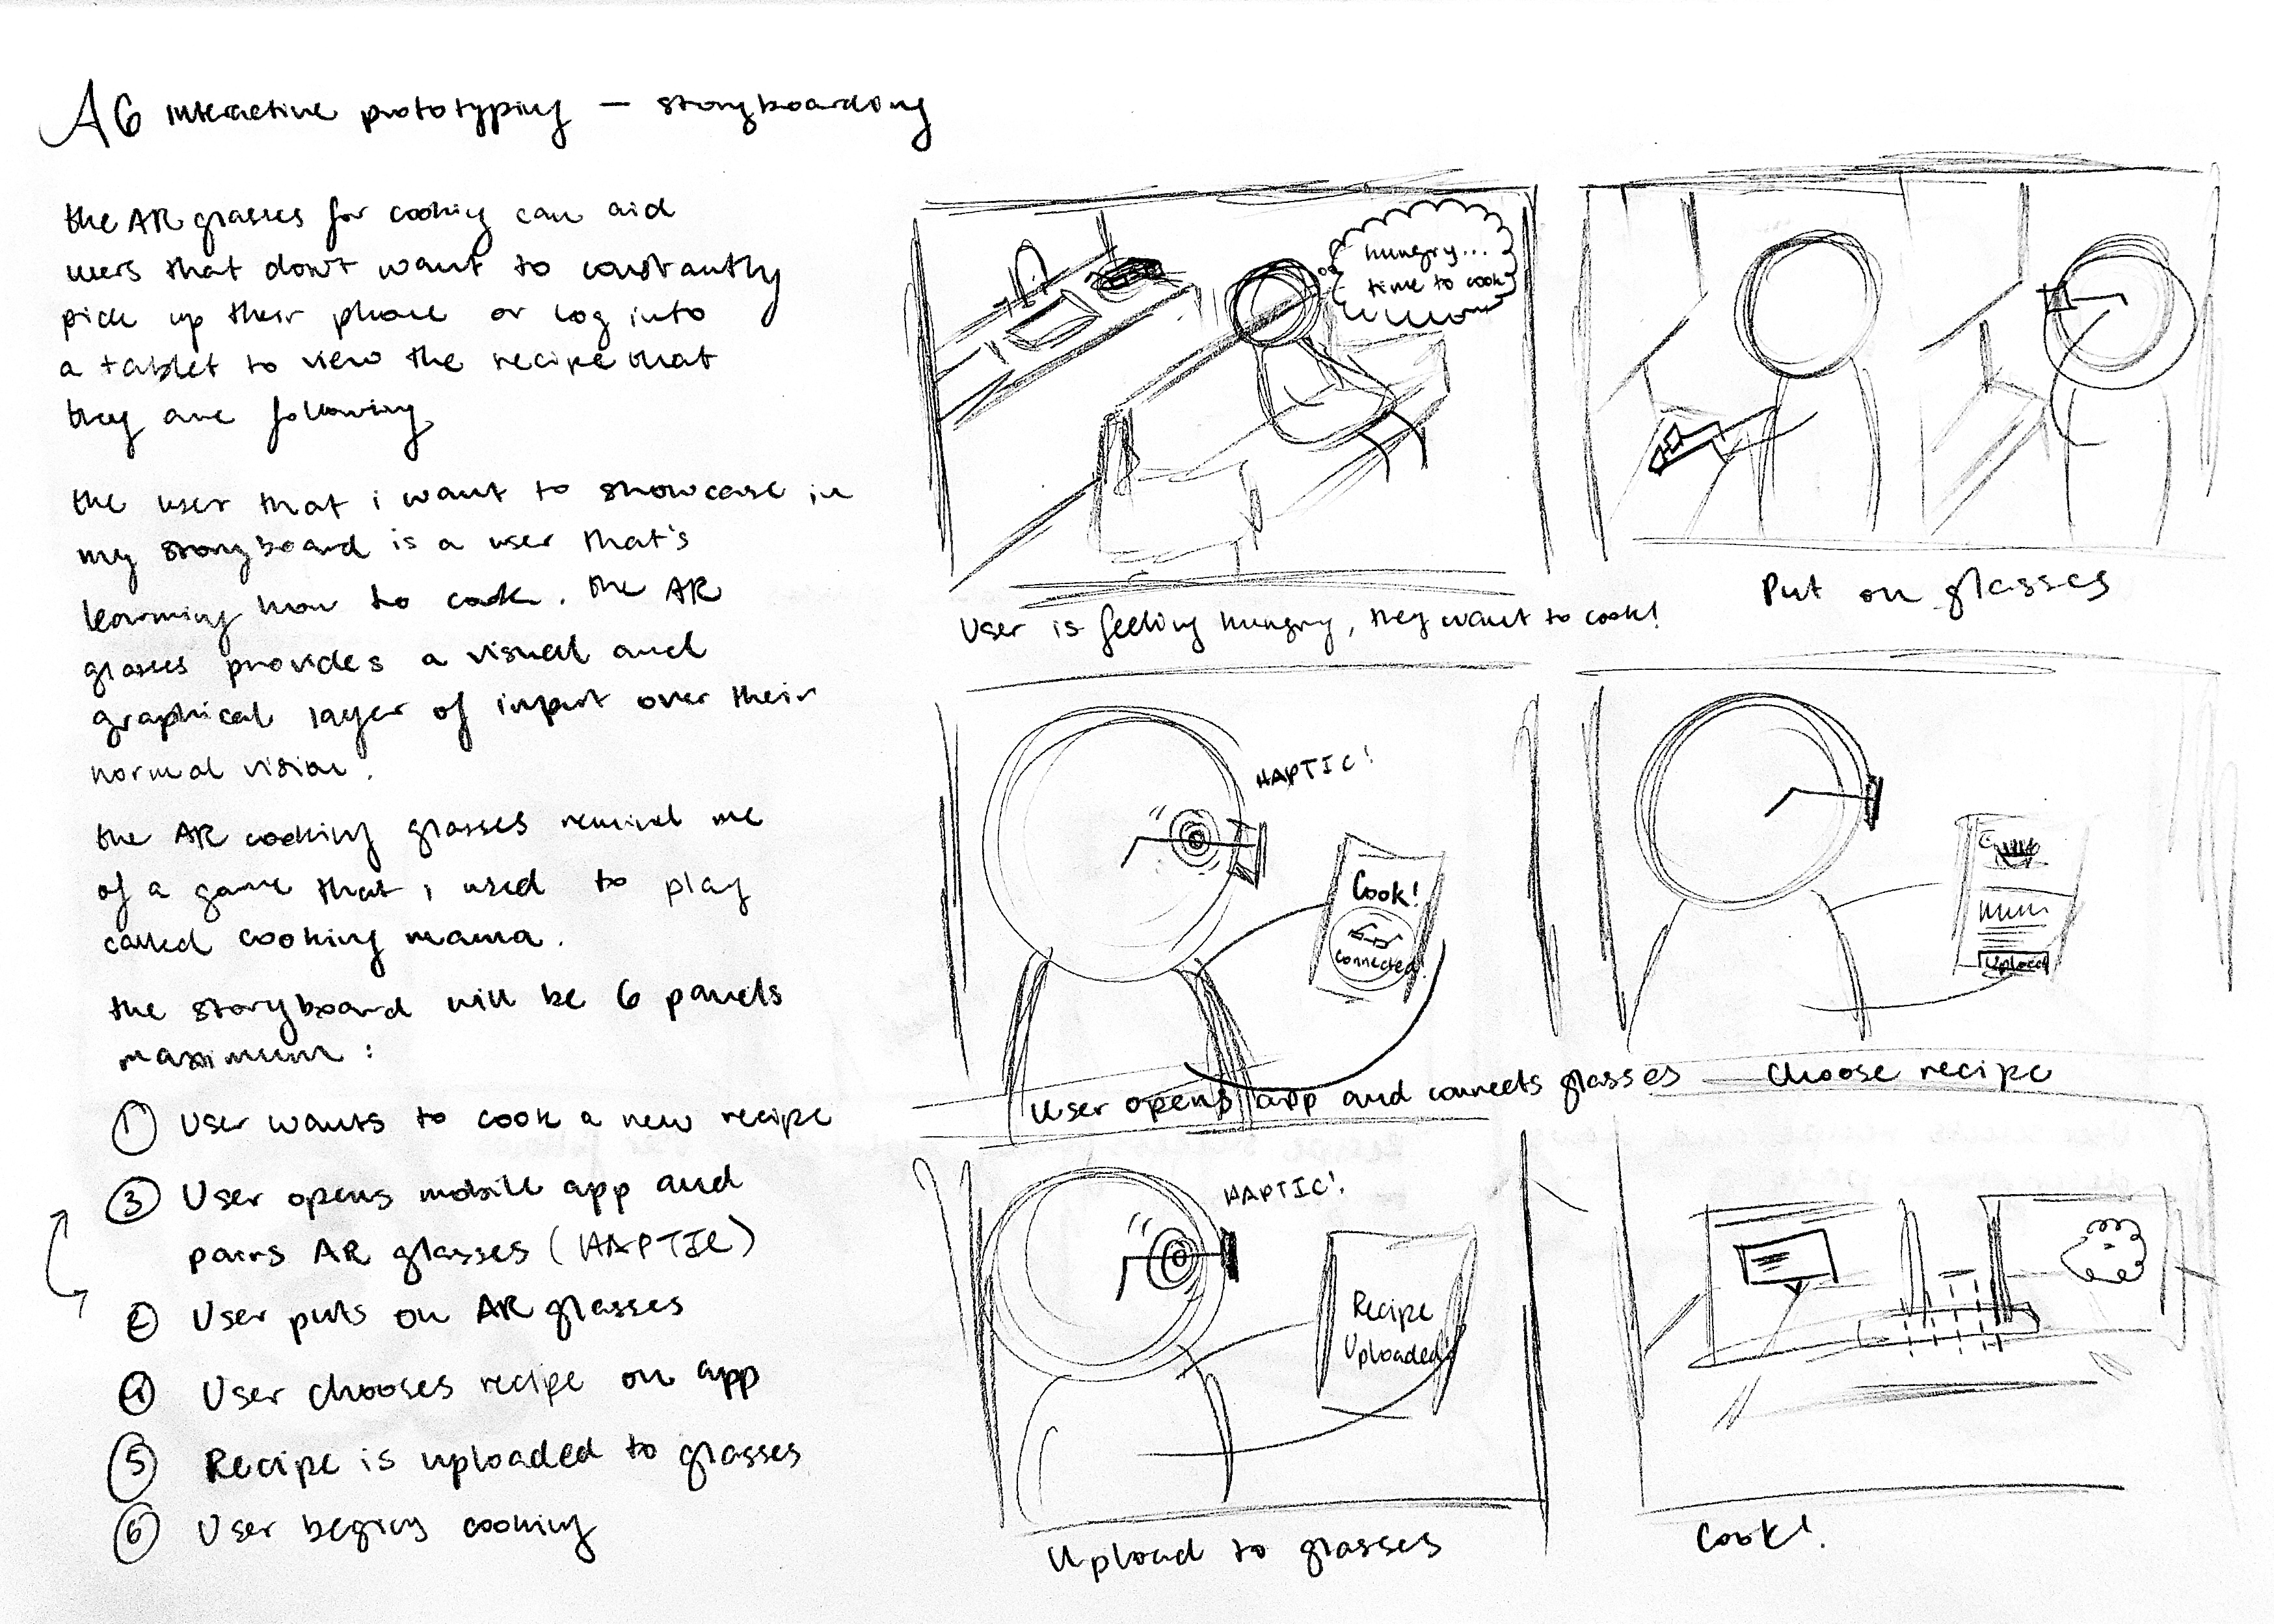 A6 interactive prototyping — storyboarding
the AR glasses for cooking can aid
users that don't want to constantly
pick up their phone or log into
a tablet to view the recipe that
they are following
the user that i want to showcase in
my storyboard is a user that's
learning how to cook. the AR
glasses provides a visual and
graphical layer of input over their
normal vision.
the AR cooking glasses remind me
of a game that i used to play
called cooking mama.
the storyboard will be 6 panels
maximum:
① User wants to cook a new recipe
③ User opens mobile app and
pairs AR glasses (HAPTIC)
② User puts on AR glasses
④ User chooses recipe on app
⑤ Recipe is uploaded to glasses
⑥ User begins cooking
hungry...
time to cook
User is feeling hungry, they want to cook!
Put on glasses
HAPTIC!
Cook!
connected!
User opens app and connects glasses
Upload
Choose recipe
HAPTIC!
Recipe
Uploaded
Upload to glasses
Cook!